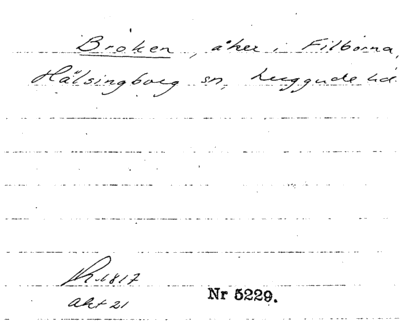 Bröken, åker i Filborna,
Hälsingborg sn, Luggude hd
1817
akt 21
Nr 5229.